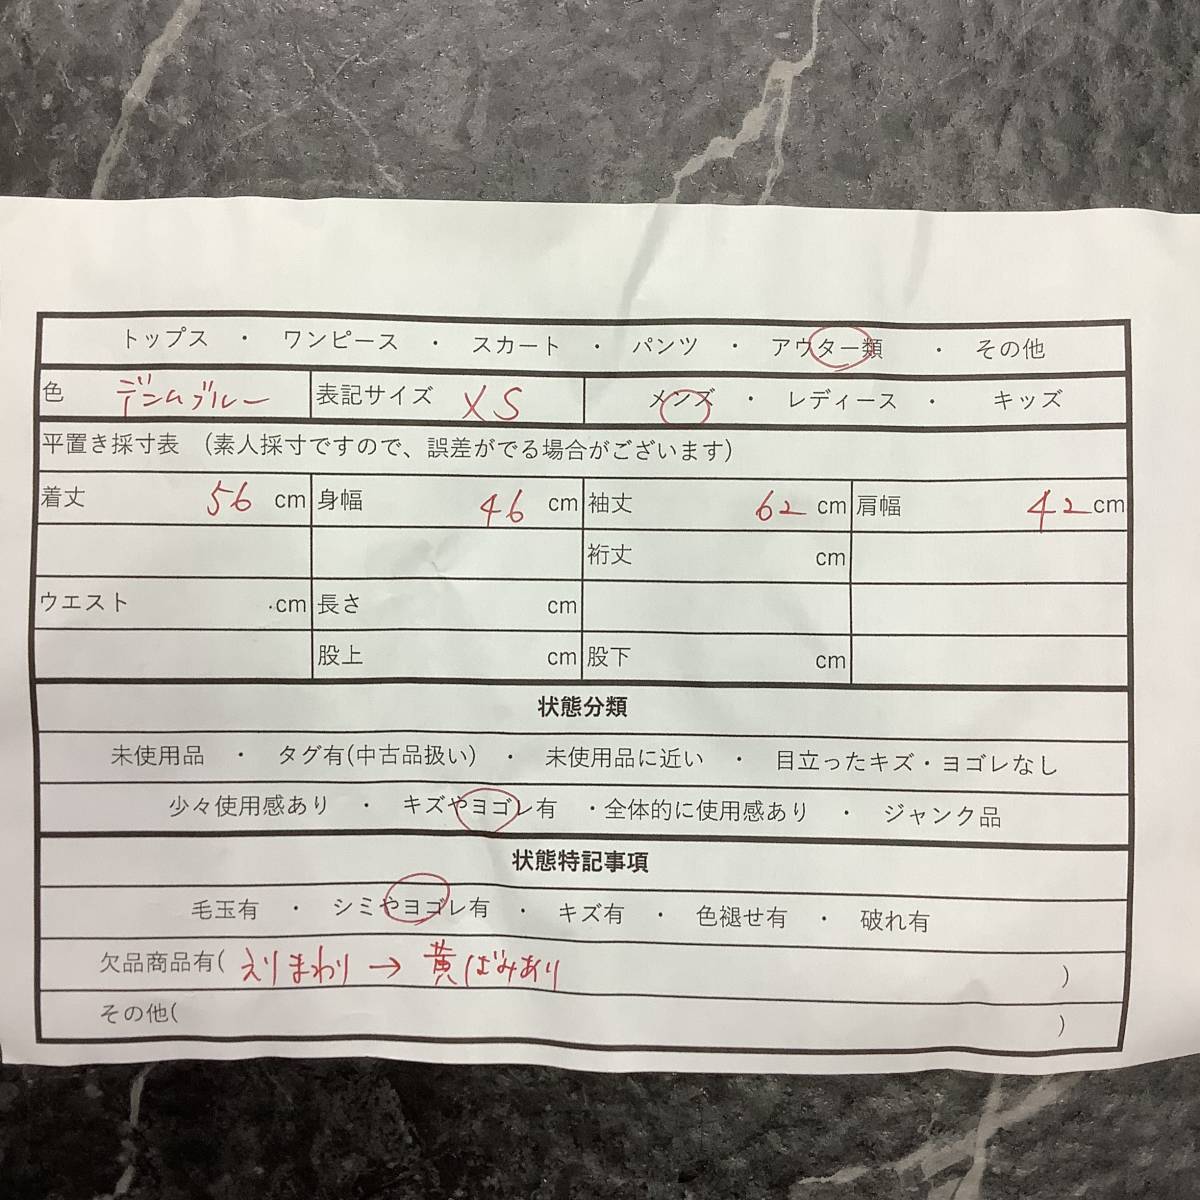 トップス ・ ワンピース ・ スカート ・ パンツ ・ アウター類 ・ その他
色 デニムブルー 表記サイズ XS メンズ ・ レディース ・ キッズ
平置き採寸表 (素人採寸ですので、誤差がでる場合がございます)
着丈 56 cm 身幅 46 cm 袖丈 62 cm 肩幅 42 cm
裄丈 cm
ウエスト cm 長さ cm
股上 cm 股下 cm
状態分類
未使用品 ・ タグ有(中古品扱い) ・ 未使用品に近い ・ 目立ったキズ・ヨゴレなし
少々使用感あり ・ キズやヨゴレ有 ・全体的に使用感あり ・ ジャンク品
状態特記事項
毛玉有 ・ シミやヨゴレ有 ・ キズ有 ・ 色褪せ有 ・ 破れ有
欠品商品有( えりまわり → 黄ばみあり )
その他( )